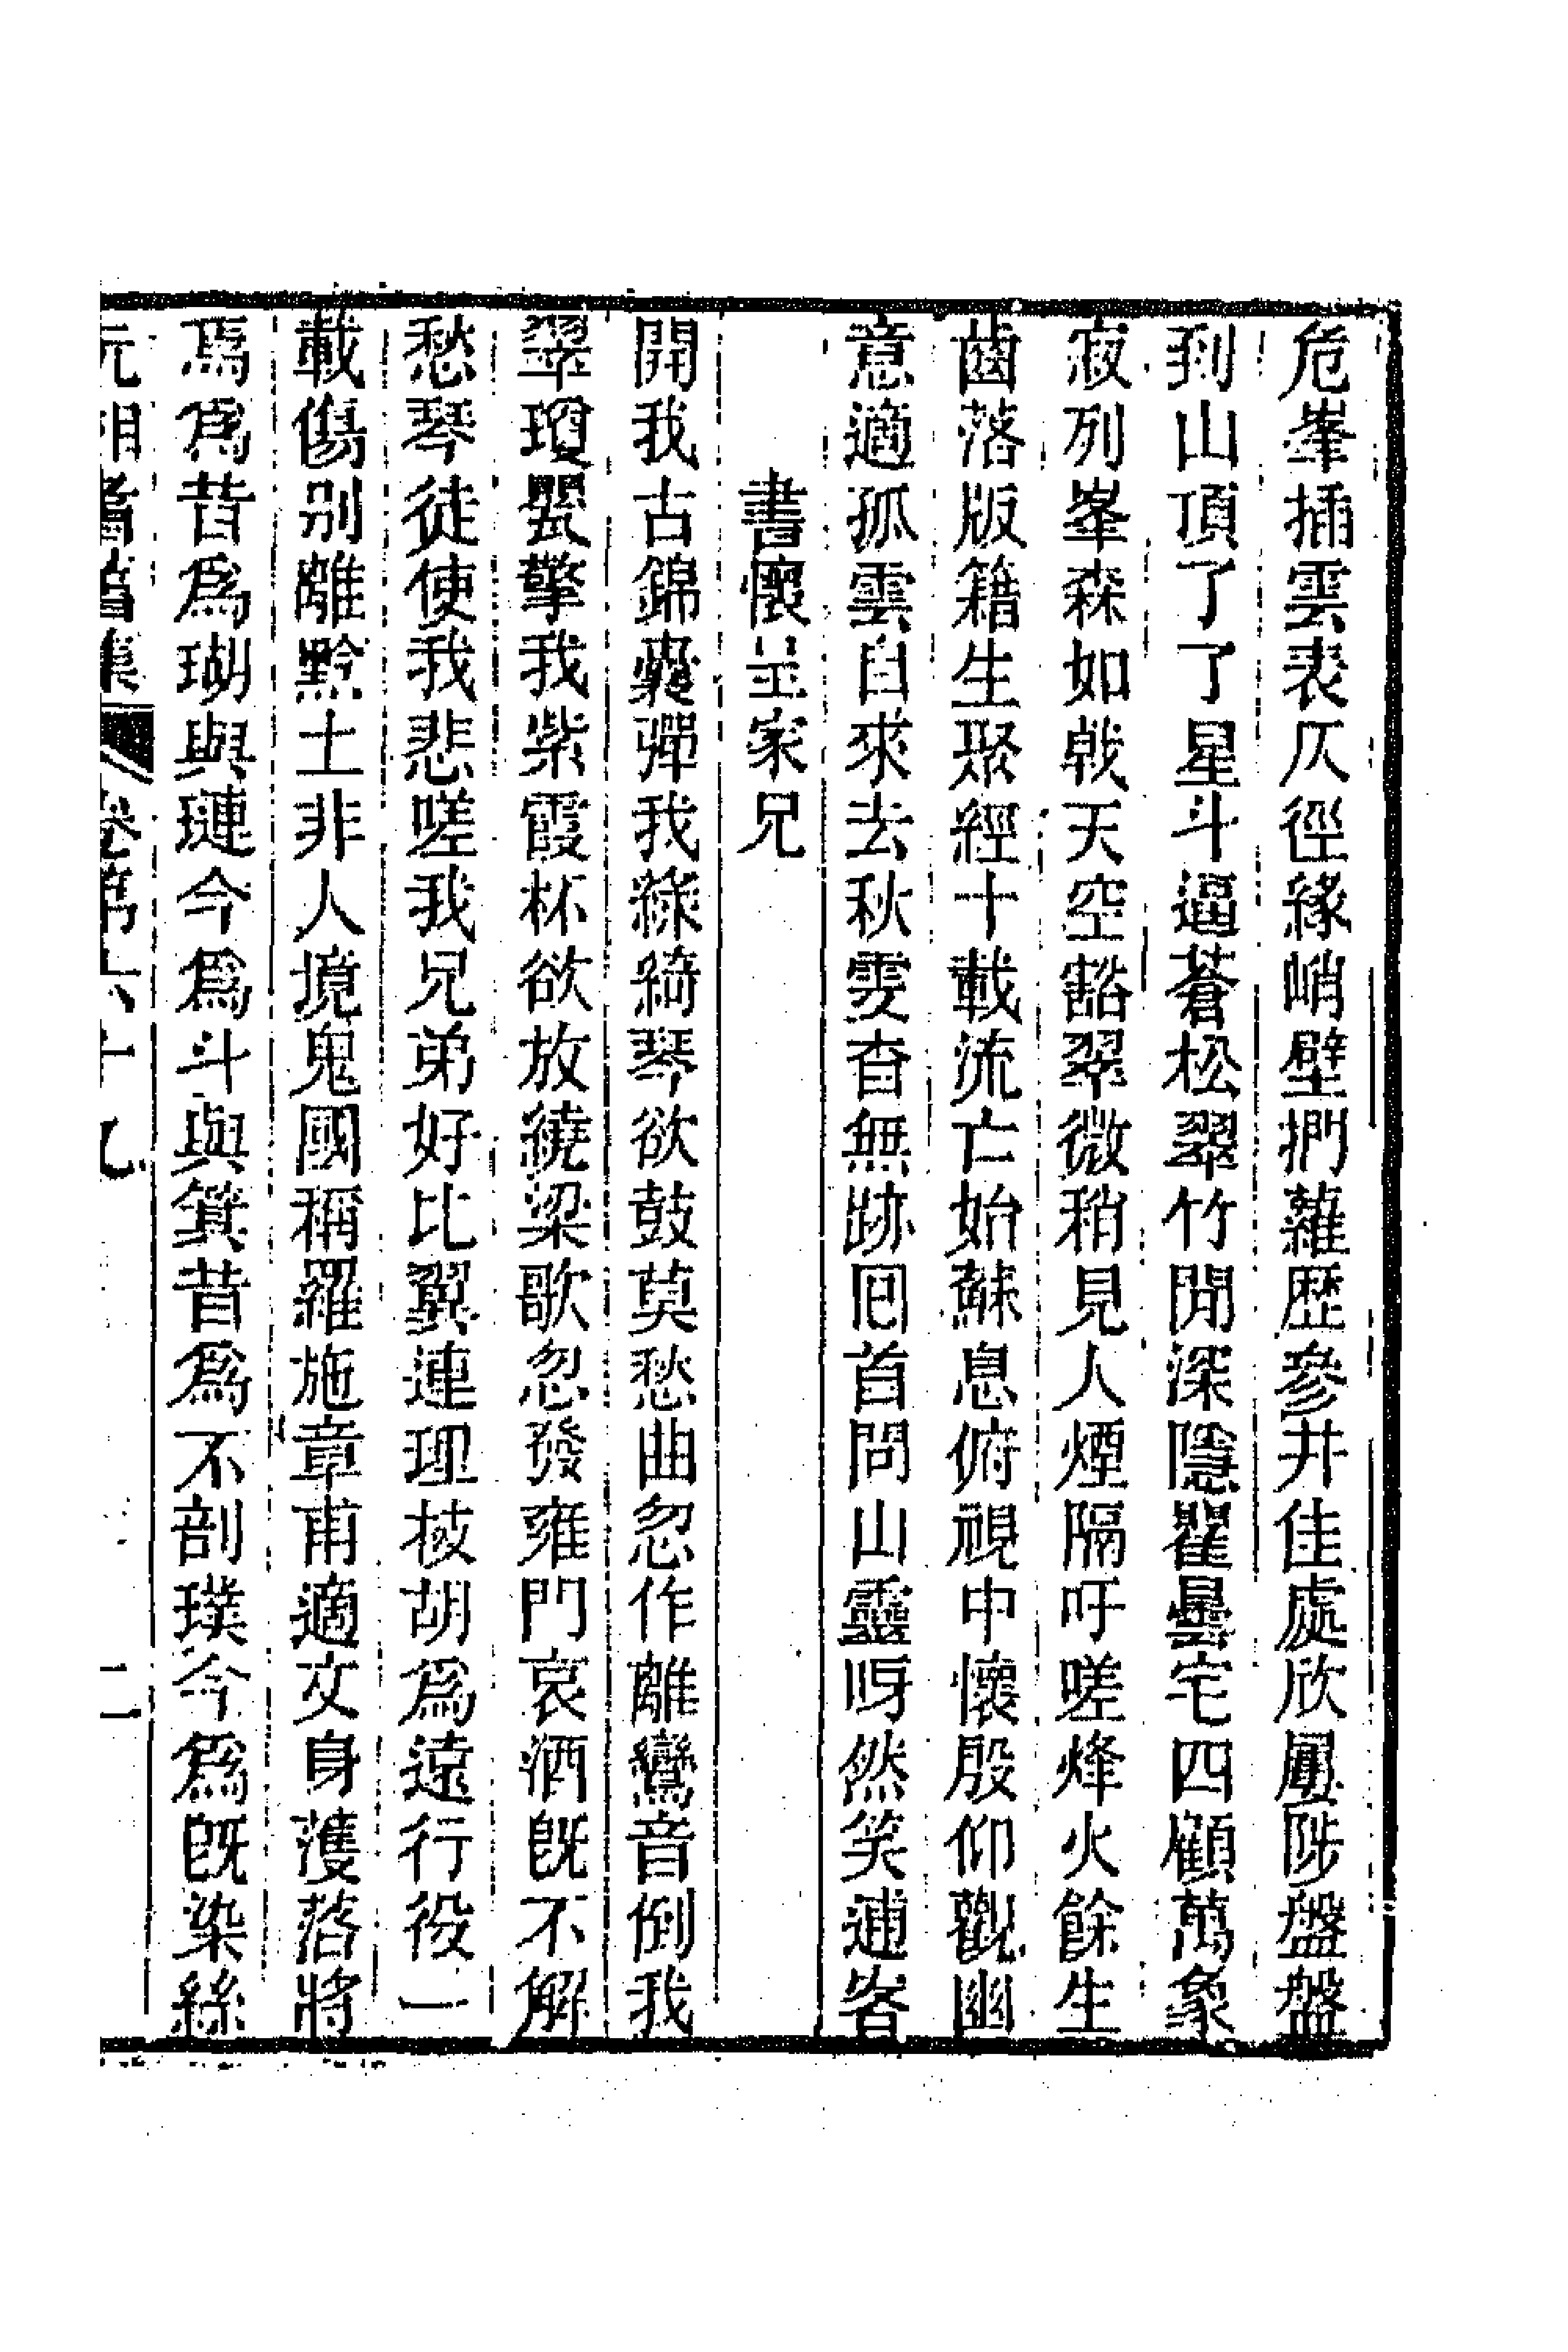 危峯插雲表仄徑緣峭壁捫蘿歷參井佳處欣屢陟盤盤
到山頂了了星斗逼蒼松翠竹閒深隱瞿曇宅四顧萬象
寂列峯森如戟天空豁翠微稍見人煙隔吁嗟烽火餘生
齒落版籍生聚經十載流亡始蘇息俯視中懷殷仰觀幽
意適孤雲自來去秋雯杳無跡囘首問山靈呀然笑逋客
書懷呈家兄
開我古錦囊彈我綠綺琴欲鼓莫愁曲忽作離鸞音倒我
翠瓊罌擎我紫霞杯欲放繞梁歌忽發雍門哀酒既不解
愁琴徒使我悲嗟我兄弟好比翼連理枝胡爲遠行役一
載傷别離黔土非人境鬼國稱羅施章甫適文身濩落將
焉爲昔爲瑚與璉今爲斗與箕昔爲不剖璞今爲既染絲
沅湘耆舊集 卷第六十九 二